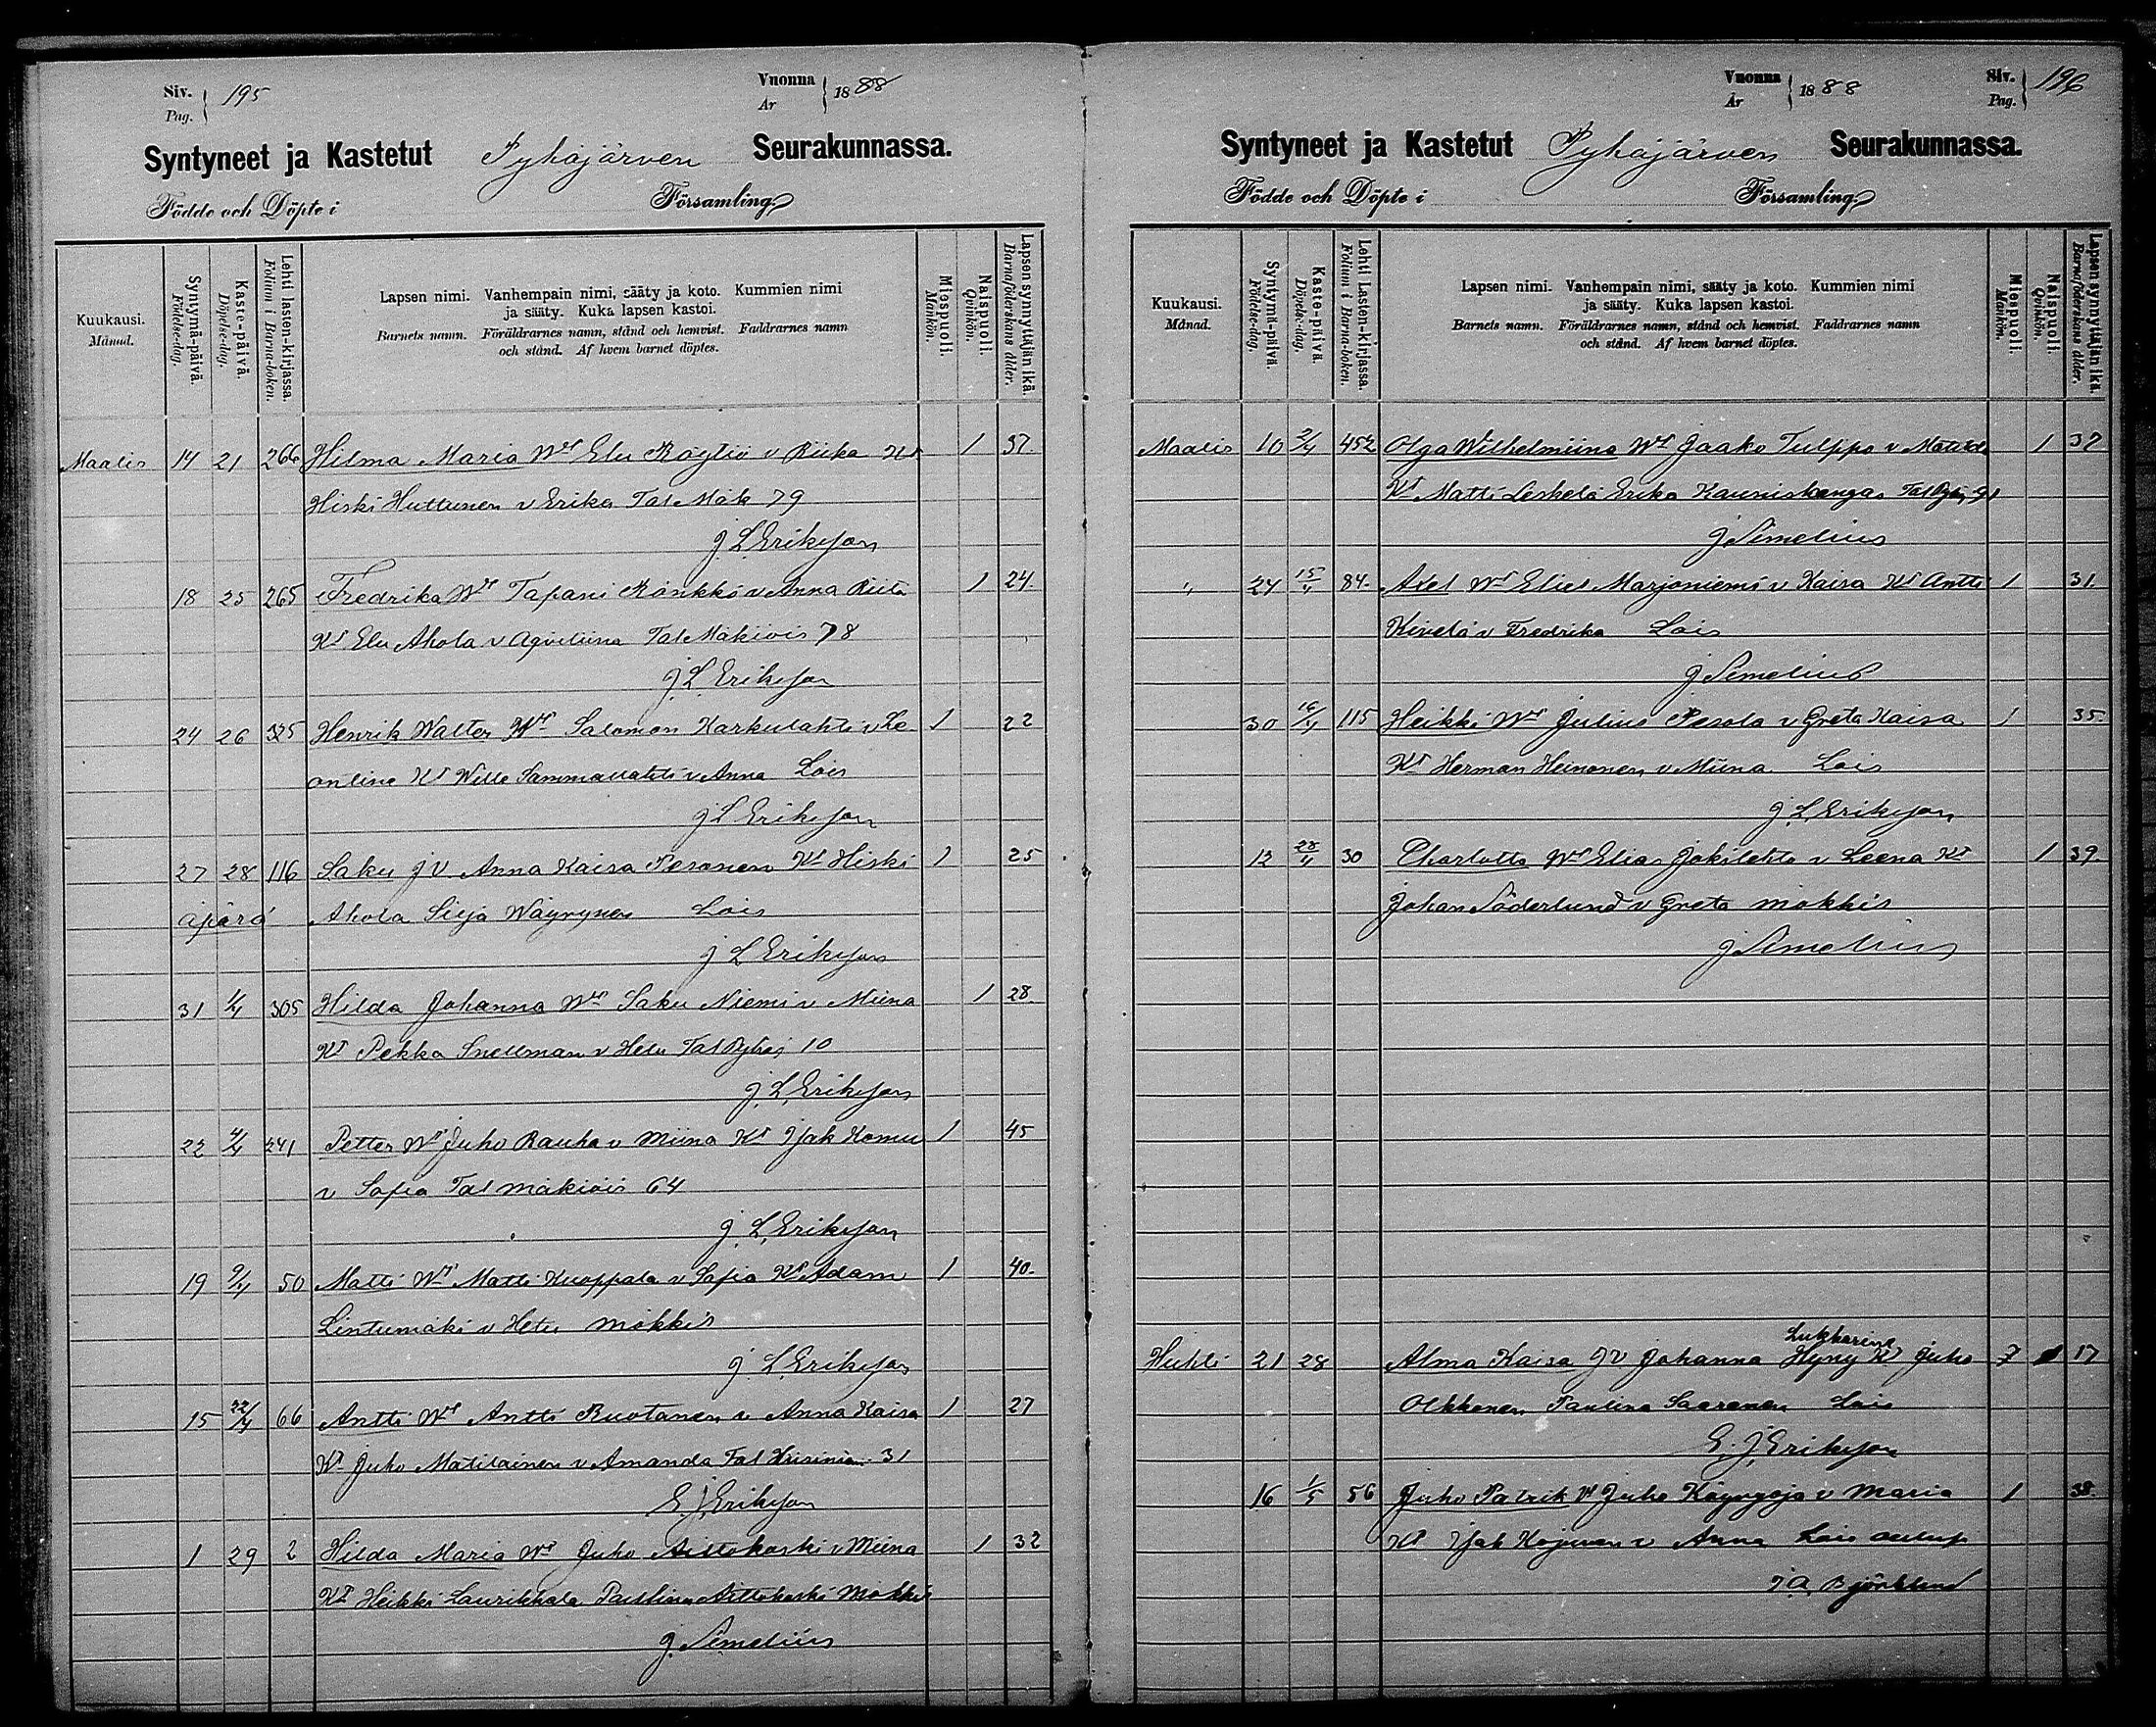 Siv. Pag. 195
Vuonna År 1888
Syntyneet ja Kastetut Pyhäjärven Seurakunnassa.
Födde och Döpte i Församling.
Kuukausi. Månad.
Syntymä-päivä. Födelse-dag.
Kaste-päivä. Döpelse-dag.
Lehti lasten-kirjassa. Folium i Barna-boken.
Lapsen nimi. Vanhempain nimi, sääty ja koto. Kummien nimi
ja sääty. Kuka lapsen kastoi.
Barnets namn. Föräldrarnes namn, stånd och hemvist. Faddrarnes namn
och stånd. Af hvem barnet döptes.
Miespuoli. Mankön.
Naispuoli. Qvinkön.
Lapsensynnyttäjän ikä. Barnaföderskans ålder.
Maalis 14 21 266 Hilma Maria Wt Elu Röytiö v Riika Kt 1 37.
Hiski Huttunen v Erika Tal Mäk 79
J. L. Eriksson
18 25 265 Fredrika Wt Tapani Rönkkö v Anna Riita 1 24.
Kt Elu Ahola v Aqviliina Tal Mäkiöis 78
J. L. Eriksson
24 26 325 Henrik Walter Wt Salomon Karkulahti v Le- 1 22
ontine Kt Wille Sammallahti v Anna Lois
J L Eriksson
27 28 116 Saku J V Anna Kaisa Pesonen Kt Hiski 1 25
äpärä Ahola Silja Wäyrynen Lois
J L Eriksson
31 1/4 305 Hilda Johanna Wt Saku Niemi v Miina 1 28
Kt Pekka Snellman v Helu Tal Pyhäj 10
J. L. Eriksson
22 4/4 241 Petter Wt Juho Rauha v Miina Kt Isak Komu 1 45
v Sofia Tal Mäkiöis 64
J. L. Eriksson
19 9/4 50 Matti Wt Matti Kuoppala v Sofia Kt Adam 1 40.
Lintumäki v Hetu mökkis
J. L. Eriksson
15 22/4 66 Antti Wt Antti Ruotanen v Anna Kaisa 1 27
Kt Juho Matilainen v Amanda Tal 31
E. J. Eriksson
1 29 2 Hilda Maria Wt Juho Aittokoski v Miina 1 32
Kt Heikki Laurikkala Pauliina Aittokoski Mökkis
J. Simelius
Vuonna År 1888
Siv. Pag. 196
Syntyneet ja Kastetut Pyhäjärven Seurakunnassa.
Födde och Döpte i Församling.
Kuukausi. Månad.
Syntymä-päivä. Födelse-dag.
Kaste-päivä. Döpelse-dag.
Lehti Lasten-kirjassa. Folium i Barna-boken.
Lapsen nimi. Vanhempain nimi, sääty ja koto. Kummien nimi
ja sääty. Kuka lapsen kastoi.
Barnets namn. Föräldrarnes namn, stånd och hemvist. Faddrarnes namn
och stånd. Af hvem barnet döptes.
Miespuoli. Mankön.
Naispuoli. Qvinkön.
Lapsensynnyttäjän ikä. Barnaföderskans ålder.
Maalis 10 2/4 452 Olga Wilhelmiina Wt Jaako Tulppo v Matilda 1 32
Kt Matti Leskelä Erika Kauniskangas Tal
J Simelius
" 24 15/4 84. Axel Wt Eliel Marjoniemi v Kaisa Kt Antti 1 31.
Kivelä v Fredrika Lois
J Simelius
30 16/4 115 Heikki Wt Julius Pesola v Greta Kaisa 1 35.
Kt Herman Heinonen v Miina Lois
J. L. Eriksson
12 28/4 30 Charlotta Wt Elias Jokilehto v Leena Kt 1 39.
Johan Söderlund v Greta mökkis
J Simelius
Lukkarinen
Huhti 21 28 Alma Kaisa J V Johanna Hyny Kt Juho 1 17
Olkkonen Paulina Saarenen Lois
E. J. Eriksson
16 1/5 56 Juho Patrik Wt Juho Köyryoja v Maria 1 38.
Kt Isak Kojunen v Anna Lois
J. A. Björklund